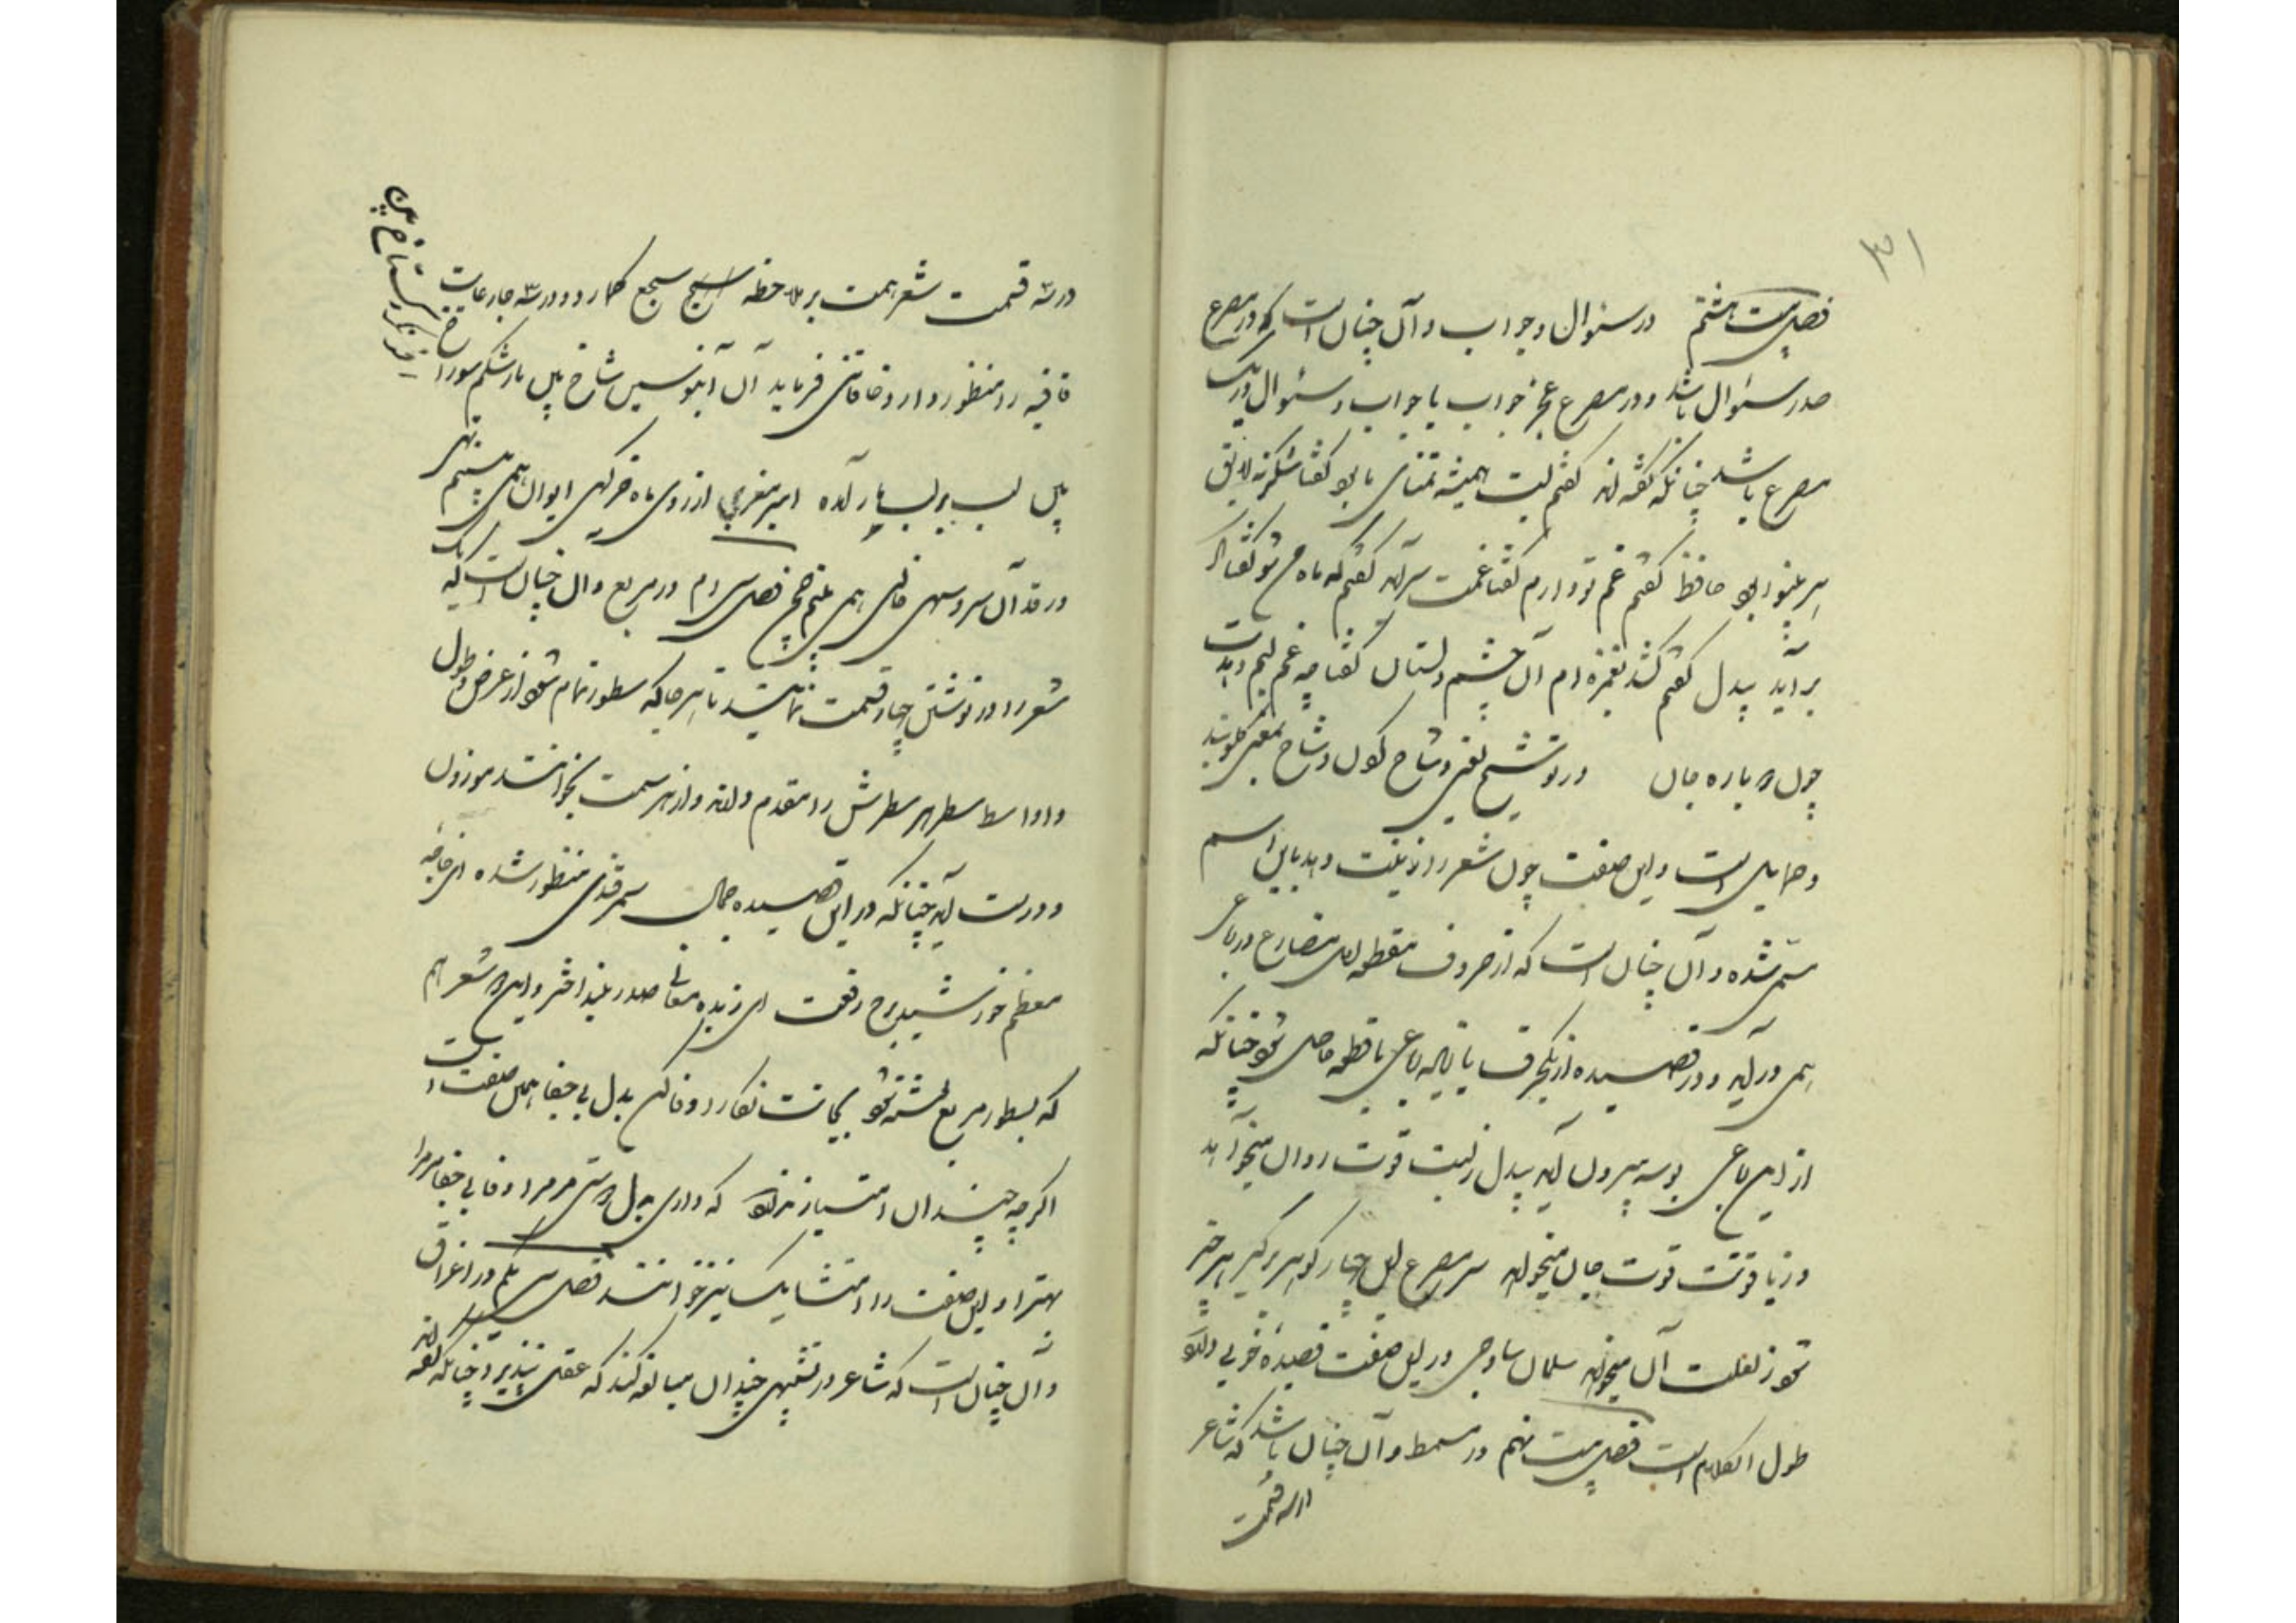 ۳۱
فصل بیست هشتم در سئوال و جواب و آن چنان است که در مصرع
صدر سئوال باشد و در مصرع عجز جواب یا جواب و سئوال در یک
مصرع باشد چنانکه گفته‌اند گفتم لبت همیشه تمنای ما بود گفتا شکر نه لایق
هر بینوا بود حافظ گفتم غم تو دارم گفتا غمت سر آید گفتم که ماه من شو گفتا اگر
بر آید بیدل گفتم کشد بغمزه‌ام آن چشم دلستان گفتا چه غم لبم دهدت
چون دوباره جان در توشیح لغتی وشاح کول وشاح بمعنی گلوبند
و حمایل است و این صفت چون شعر را زینت دهد باین اسم
مسمی شده و آن چنان است که از حروف مقطعه اول مصارع رباعی
اسمی در آید و در قصیده از یک حرف یا رباعی یا قطعه حاصل شود چنانکه
از این رباعی بوسه بیرون آید بیدل زلبت قوت روان میخواهد
وز یاقوتت قوت جان میخواهد سر مصرع این چار گهر برگیر هر چیز
که از لعلت آن میخواهد سلمان ساوجی در این صفت قصیده خوبی دارد
طول الکلام است فصل بیست نهم در مسمط و آن چنان باشد که شاعر
در سه قسمت
در سه قسمت شعر همت بر ملاحظه اسجع سجع گمارد و در سه جا رعایت
قافیه را منظور دارد خاقانی فرماید آن آبنوسین شاخ بین مار شکم سوراخ
بین لب بر لب یار آمده امیر معزی از روی ماه خرگهی ایوان همی بینم تهی
در قد آن سرو سهی خالی همی بینم چمن فصل سی‌ام در مربع و آن چنان است که یک
شعر را در نوشتن چهار قسمت نمایند تا هر جا که سطور تمام شود از عرض و طول
و اواسط سطر هر سطرش را مقدم دارند و از هر سمت بخوانند موزون
و درست آید چنانکه در این قصیده جمال سمرقندی منظور شده ای خواجه
معظم خورشید برج رفعت ای زبده معانی صدر بلند اختر و این دو شعر هم
که بسطور مربع نوشته شود بجانت نگارا وفا کن بدل بی جفا همین صفت است
اگر چه چندان امتیاز ندارد که داری بدل دوستی مرمرا وفا بی جفا مرمرا
بهتر و این صفت را متشابک نیز خوانند فصل سی یکم در اغراق
و آن چنان است که شاعر در تشبیهی چندان مبالغه کند که عقل نپذیرد چنانکه گفته‌اند